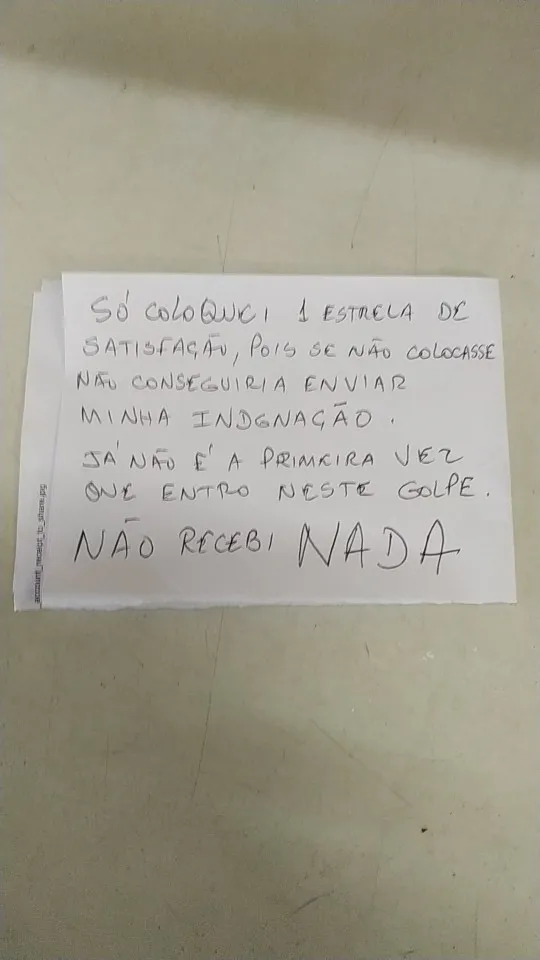 SÓ COLOQUEI 1 ESTRELA DE
SATISFAÇÃO, POIS SE NÃO COLOCASSE
NÃO CONSEGUIRIA ENVIAR
MINHA INDGNAÇÃO.
JÁ NÃO É A PRIMEIRA VEZ
QUE ENTRO NESTE GOLPE.
NÃO RECEBI NADA
_account_receipt_to_share.jpg